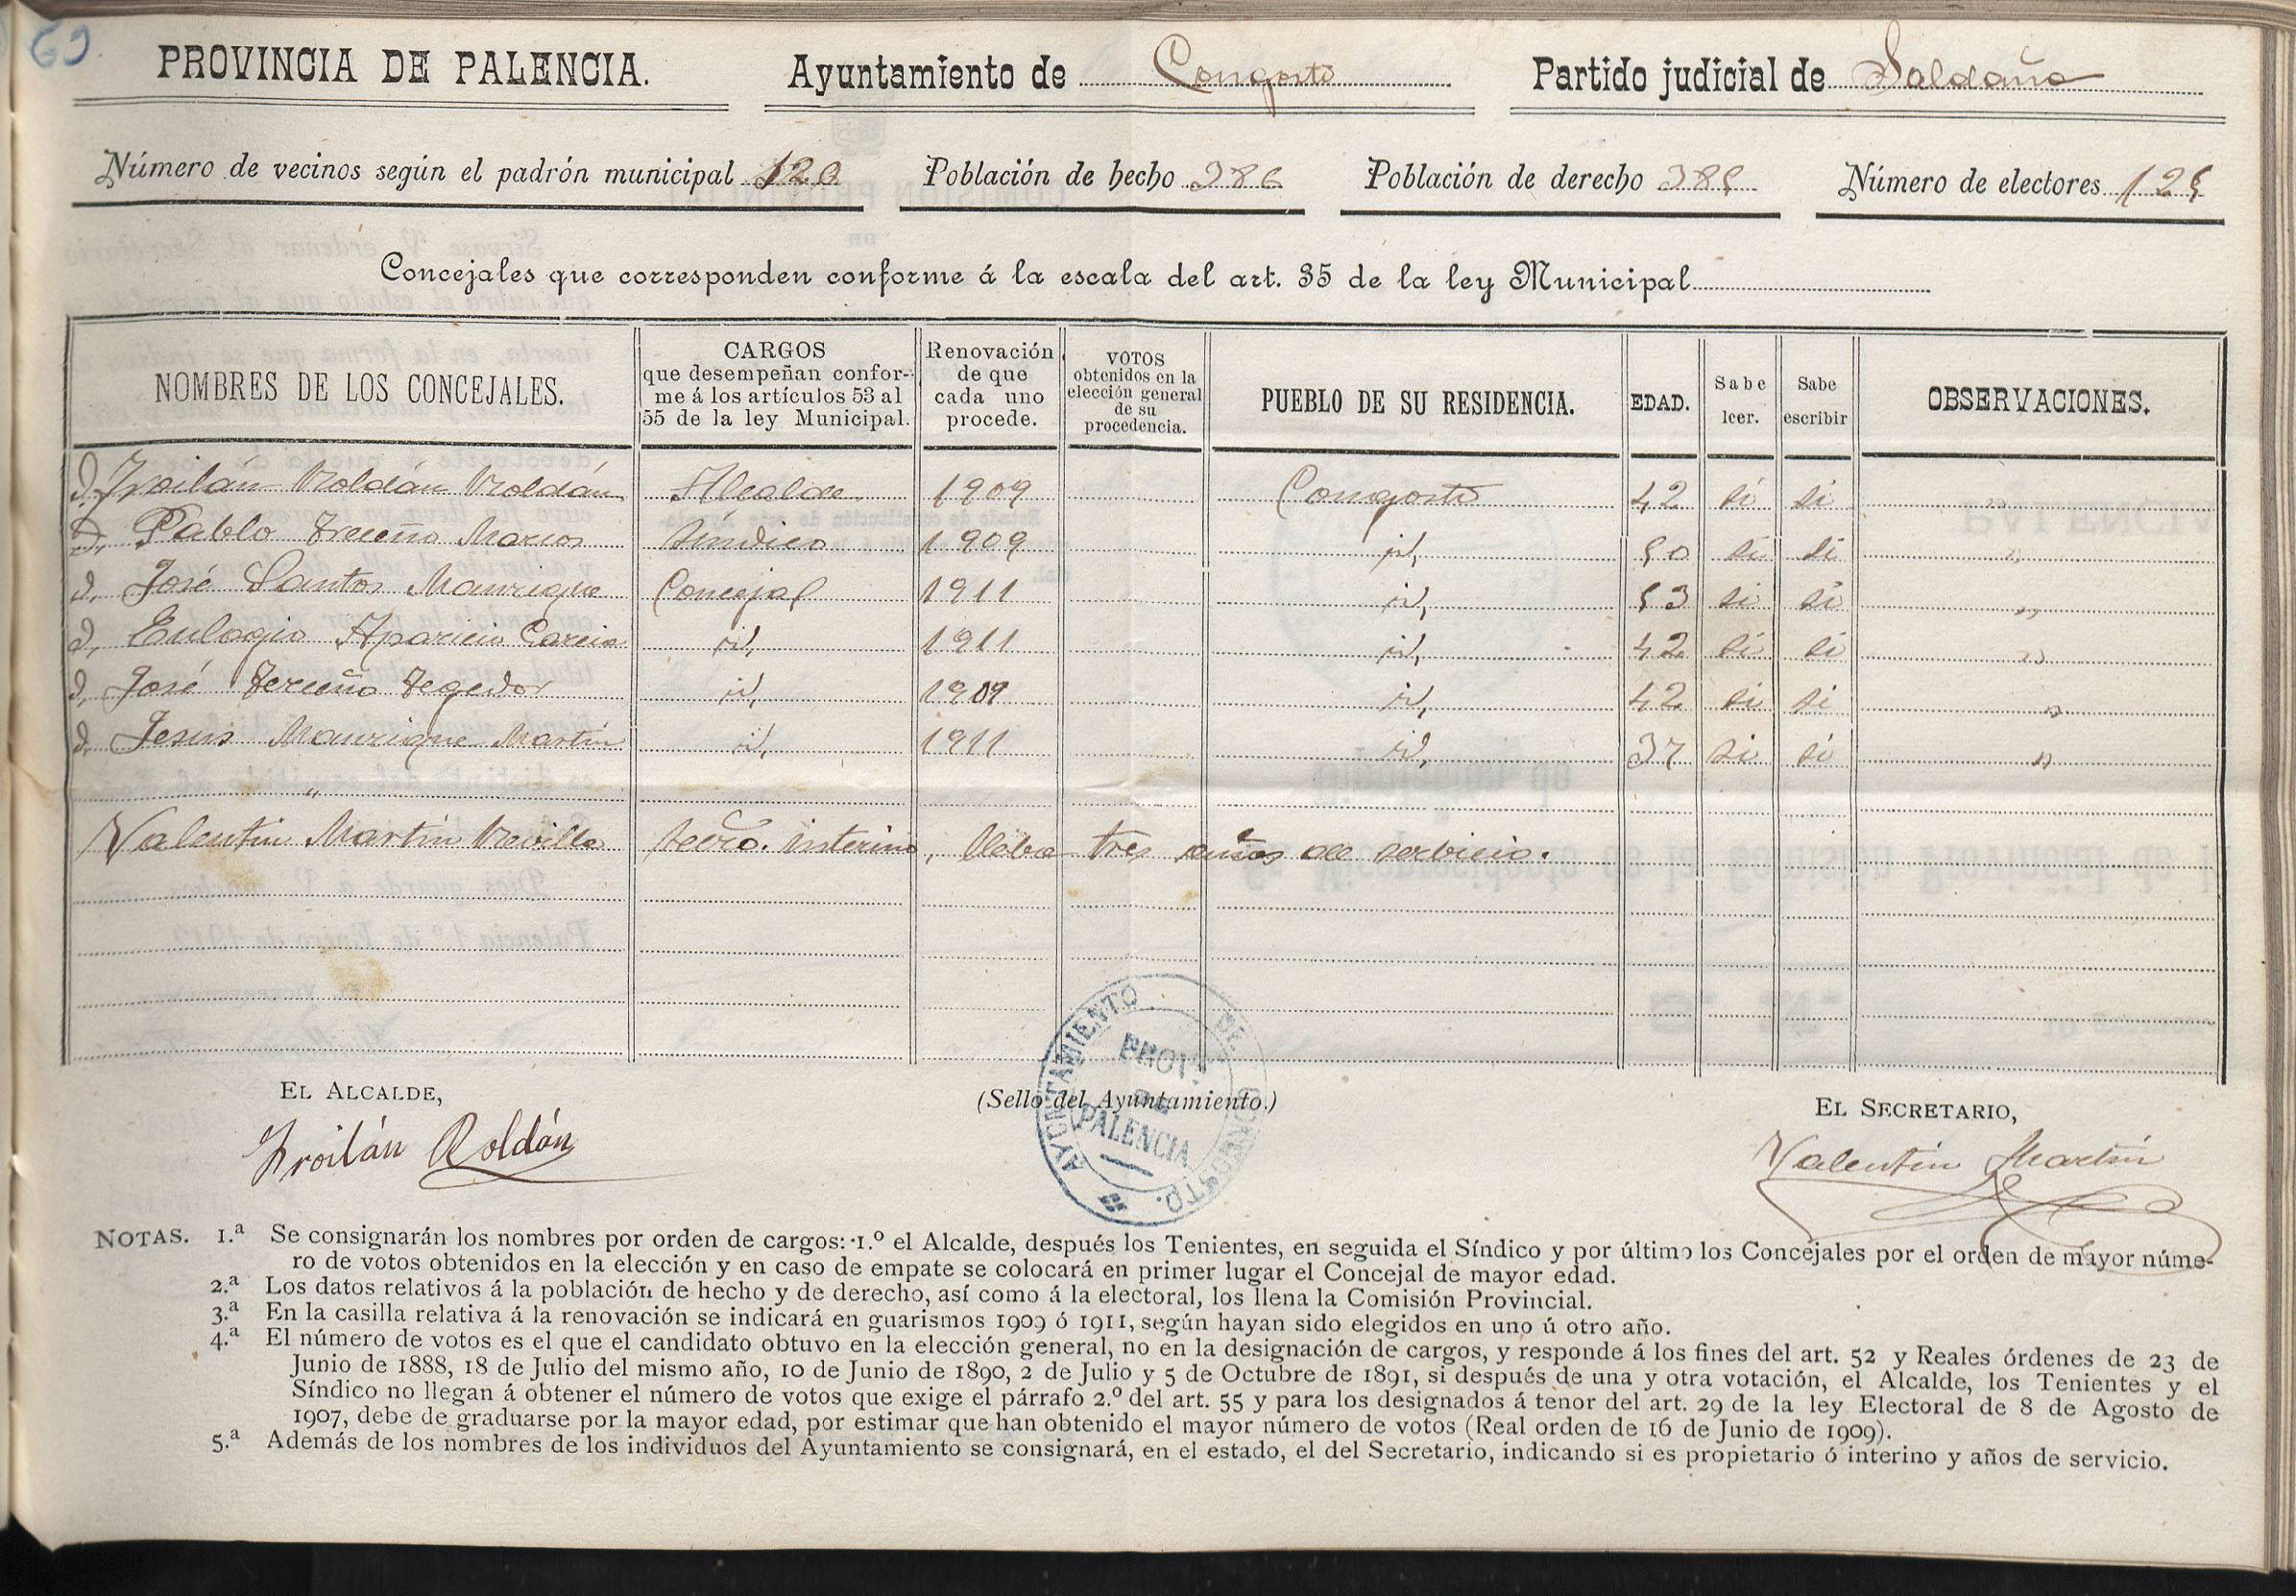 69
PROVINCIA DE PALENCIA. Ayuntamiento de Congosto Partido judicial de Saldaña
Número de vecinos según el padrón municipal 120 Población de hecho 386 Población de derecho 385 Número de electores 125
Concejales que corresponden conforme á la escala del art. 35 de la ley Municipal
NOMBRES DE LOS CONCEJALES. CARGOS que desempeñan confor- me á los artículos 53 al 55 de la ley Municipal. Renovación de que cada uno procede. VOTOS obtenidos en la elección general de su procedencia. PUEBLO DE SU RESIDENCIA. EDAD. Sabe leer. Sabe escribir OBSERVACIONES.
D. Froilán Roldán Roldán Alcalde 1909 Congosto 42 si si "
D. Pablo Treceño Marcos Sindico 1909 id, 50 si si "
D. José Santos Manrique Concejal 1911 id, 53 si si "
D. Eulogio Aparicio Garcia id, 1911 id, 42 si si "
D. José Treceño Tegedor id, 1909 id, 42 si si "
D. Jesus Manrique Martin id, 1911 id, 37 si si "
"
Valentin Martin Revilla Secro. interino, lleba tres años de serbicio.
EL ALCALDE, (Sello del Ayuntamiento.) EL SECRETARIO,
Froilán Roldán Valentin Martin
AYUNTAMIENTO DE CONGOSTO.
PROV. DE PALENCIA
NOTAS. 1.ª Se consignarán los nombres por orden de cargos: 1.º el Alcalde, después los Tenientes, en seguida el Síndico y por último los Concejales por el orden de mayor núme-
ro de votos obtenidos en la elección y en caso de empate se colocará en primer lugar el Concejal de mayor edad.
2.ª Los datos relativos á la población de hecho y de derecho, así como á la electoral, los llena la Comisión Provincial.
3.ª En la casilla relativa á la renovación se indicará en guarismos 1909 ó 1911, según hayan sido elegidos en uno ú otro año.
4.ª El número de votos es el que el candidato obtuvo en la elección general, no en la designación de cargos, y responde á los fines del art. 52 y Reales órdenes de 23 de
Junio de 1888, 18 de Julio del mismo año, 10 de Junio de 1890, 2 de Julio y 5 de Octubre de 1891, si después de una y otra votación, el Alcalde, los Tenientes y el
Síndico no llegan á obtener el número de votos que exige el párrafo 2.º del art. 55 y para los designados á tenor del art. 29 de la ley Electoral de 8 de Agosto de
1907, debe de graduarse por la mayor edad, por estimar que han obtenido el mayor número de votos (Real orden de 16 de Junio de 1909).
5.ª Además de los nombres de los individuos del Ayuntamiento se consignará, en el estado, el del Secretario, indicando si es propietario ó interino y años de servicio.